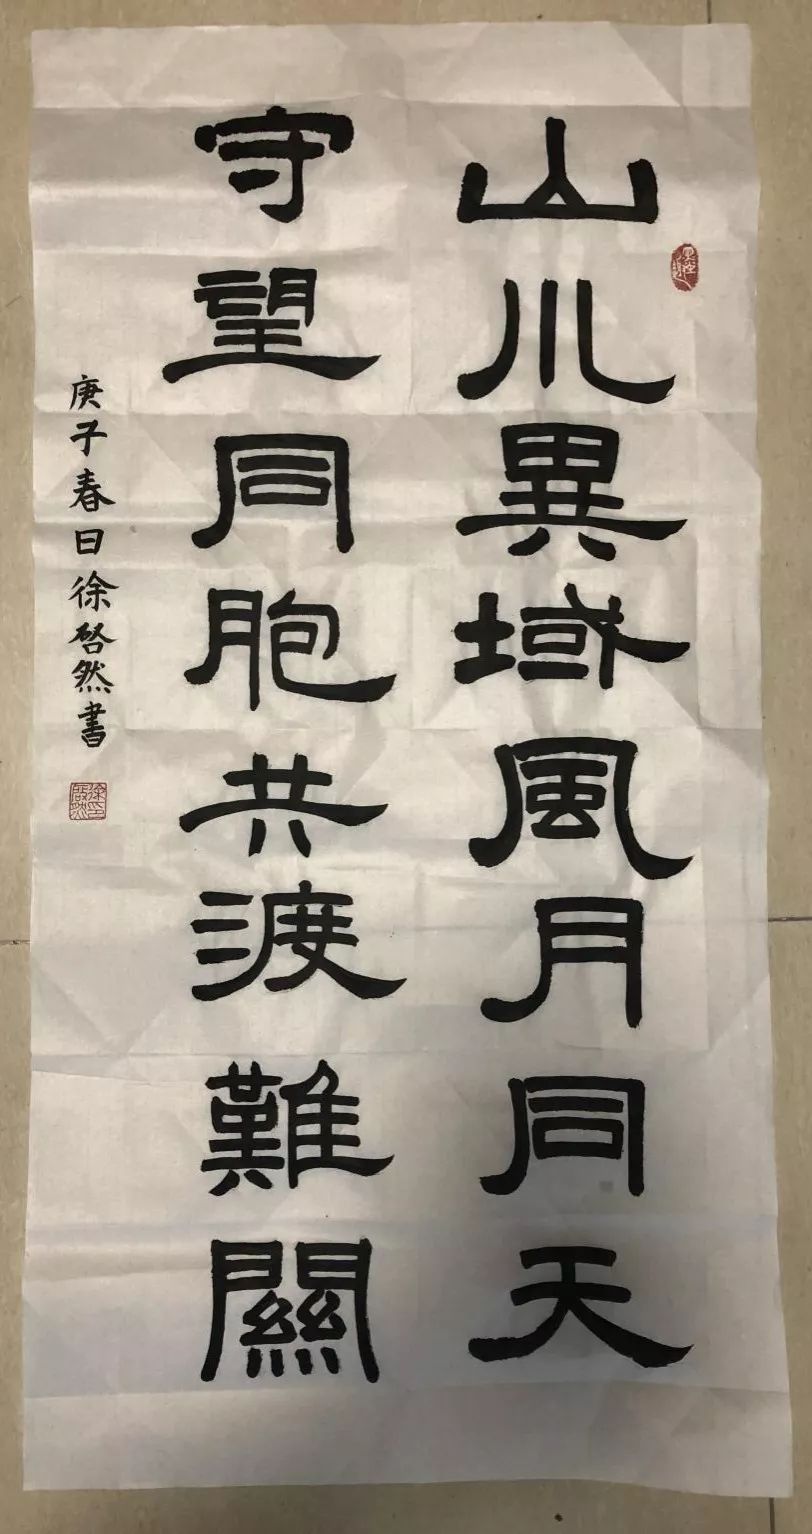 山川異域風月同天
守望同胞共渡難關
庚子春日徐啓然書